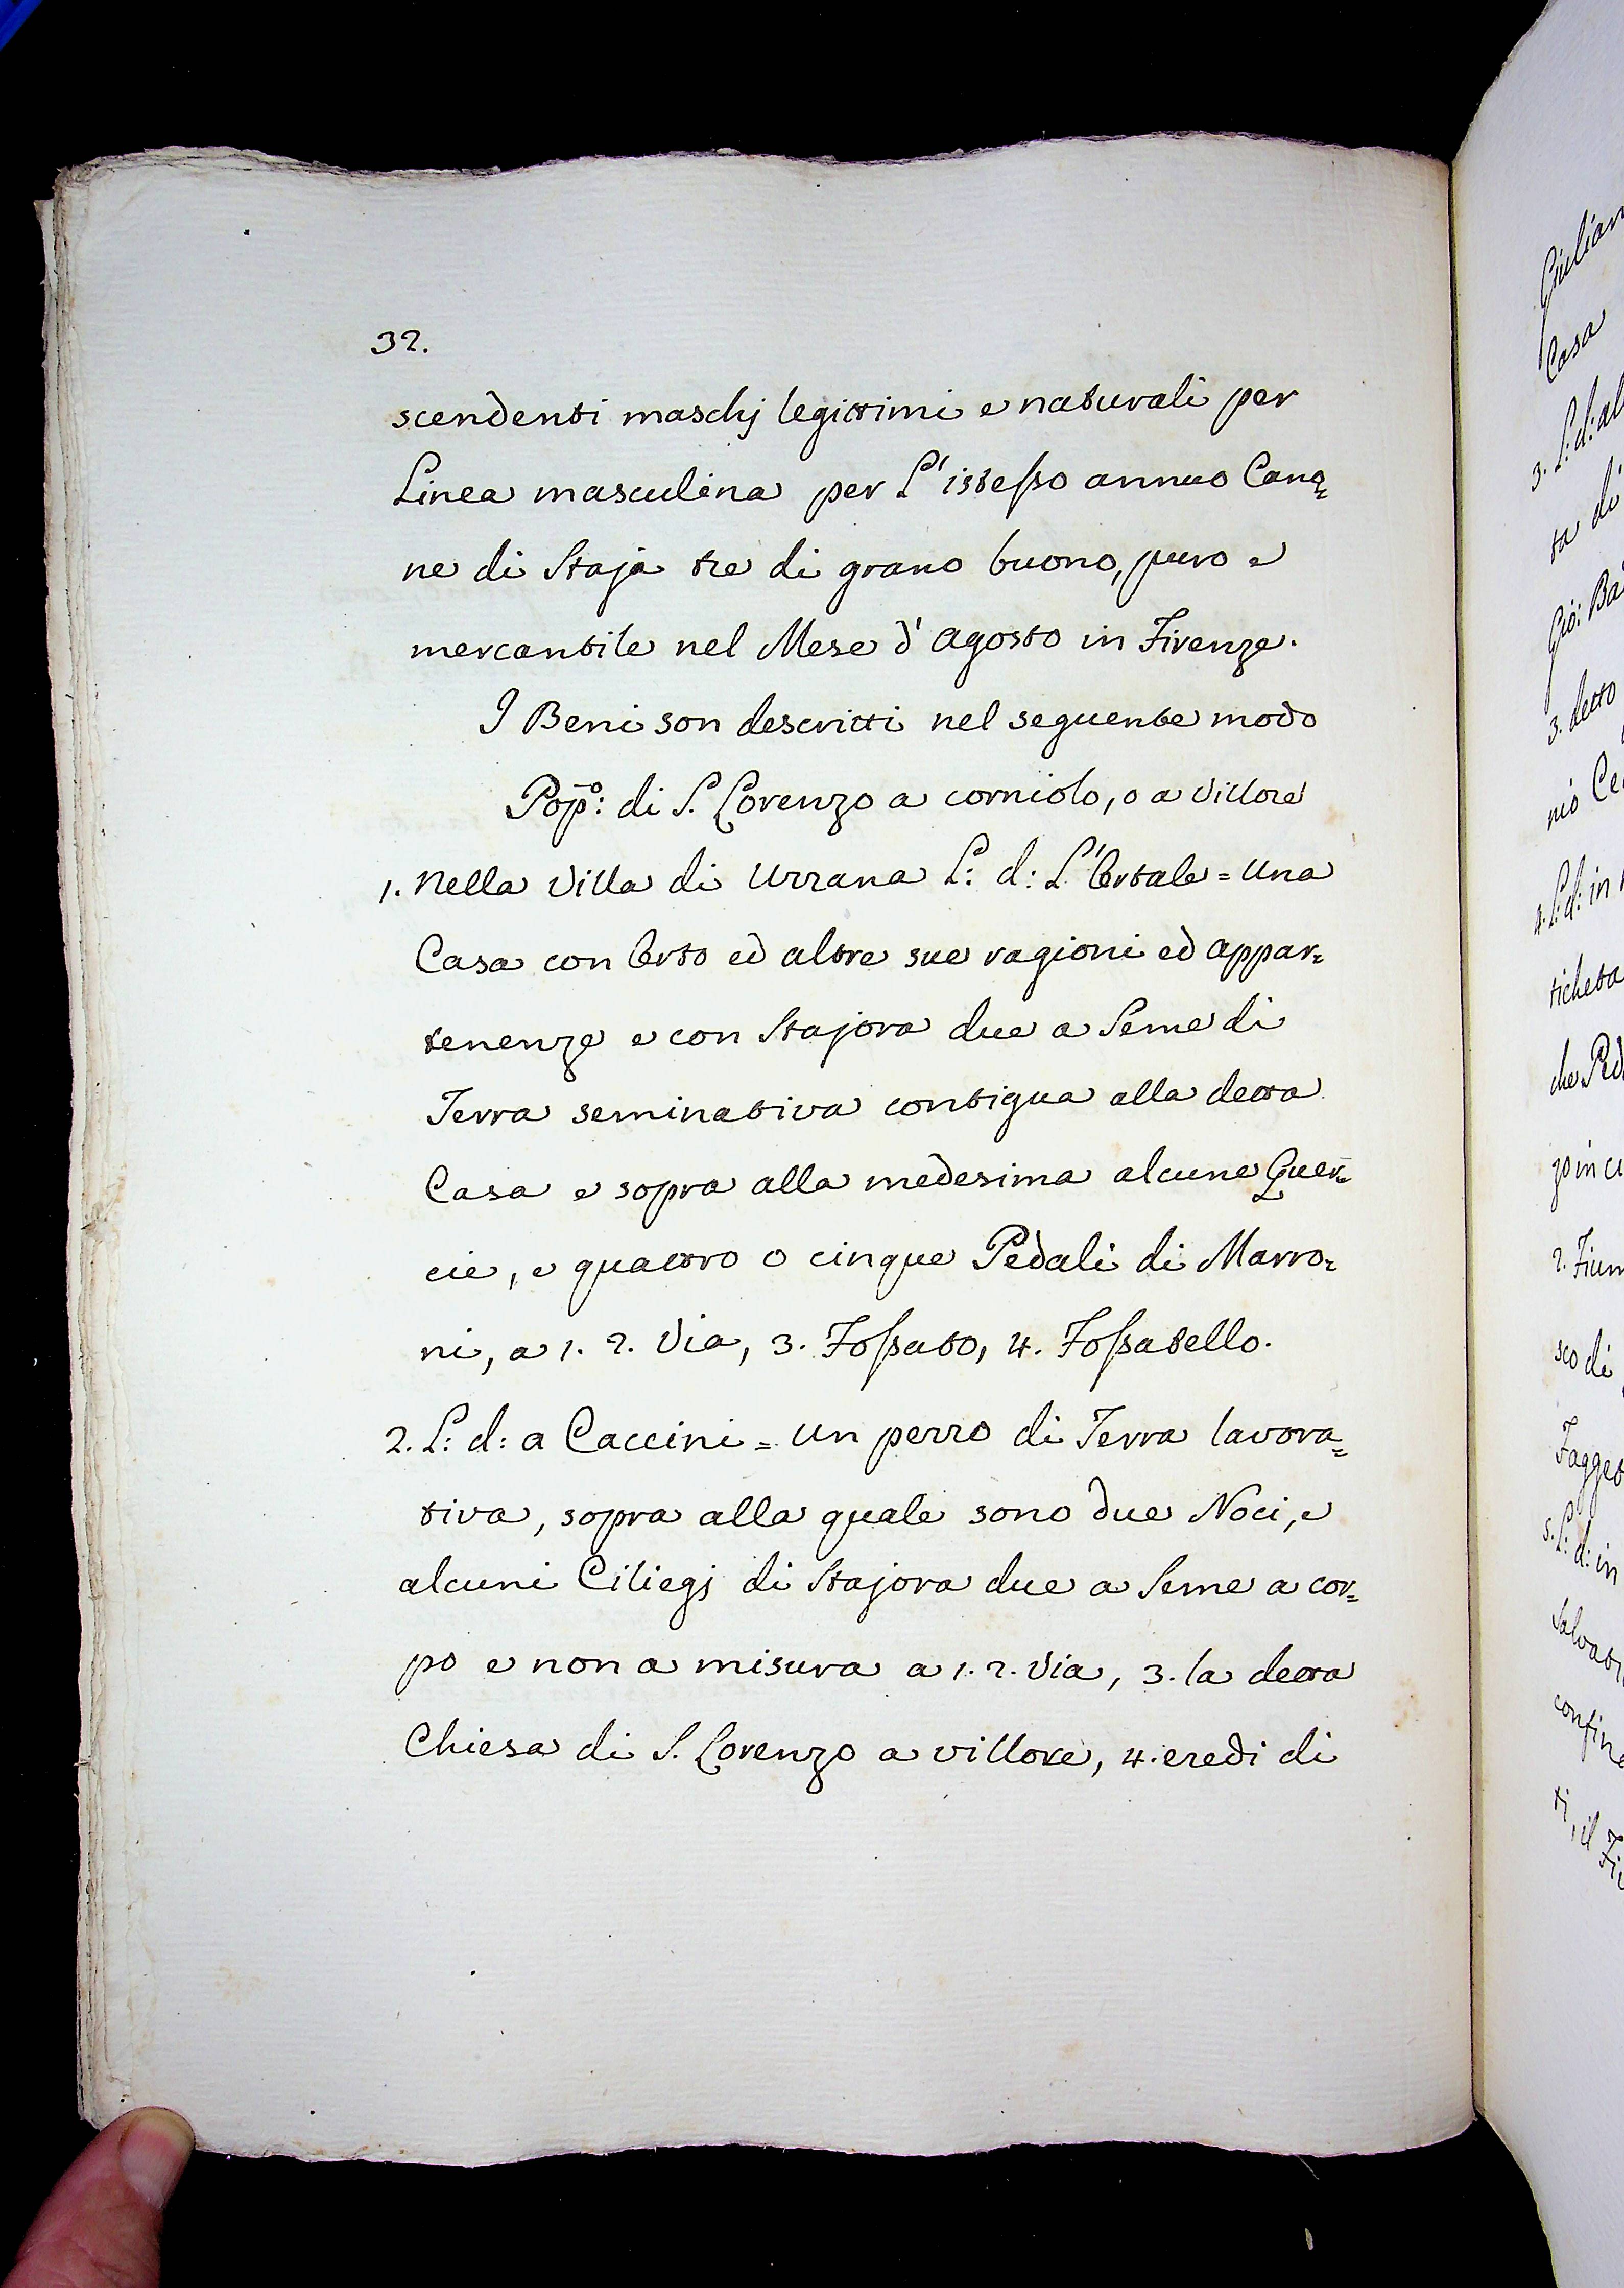 32.
scendenti maschj legittimi e naturali per
Linea masculina per L'istesso annuo Cano=
ne di Staja tre di grano buono, puro e
mercantile nel Mese d'Agosto in Firenze.
I Beni son descritti nel seguente modo
Pop̄o: di S. Lorenzo a corniolo, o a Villore
1. Nella Villa di Uzzana L: d: L'Ortale = Una
Casa con Orto ed altre sue ragioni ed appar=
tenenze e con Stajora due a Seme di
Terra seminativa contigua alla detta
Casa e sopra alla medesima alcune Quer=
cie, e quattro o cinque Pedali di Marro=
ni, a 1. 2. Via, 3. Fossato, 4. Fossatello.
2. L: d: a Caccini = Un pezzo di Terra lavora=
tiva, sopra alla quale sono due Noci, e
alcuni Ciliegj di Stajora due a Seme a cor=
po e non a misura a 1. 2. Via, 3. la detta
Chiesa di S. Lorenzo a villore, 4. eredi di
Giulian
Casa
3. L: d: al
ta di
Gio: Ba
3. detto
nio Ce
4. L: d: in
ticheta
che Ped
zo in cu
2. Fium
sco di
Fagget
5. L: d: in
Salvati
confina
ti, il Fi